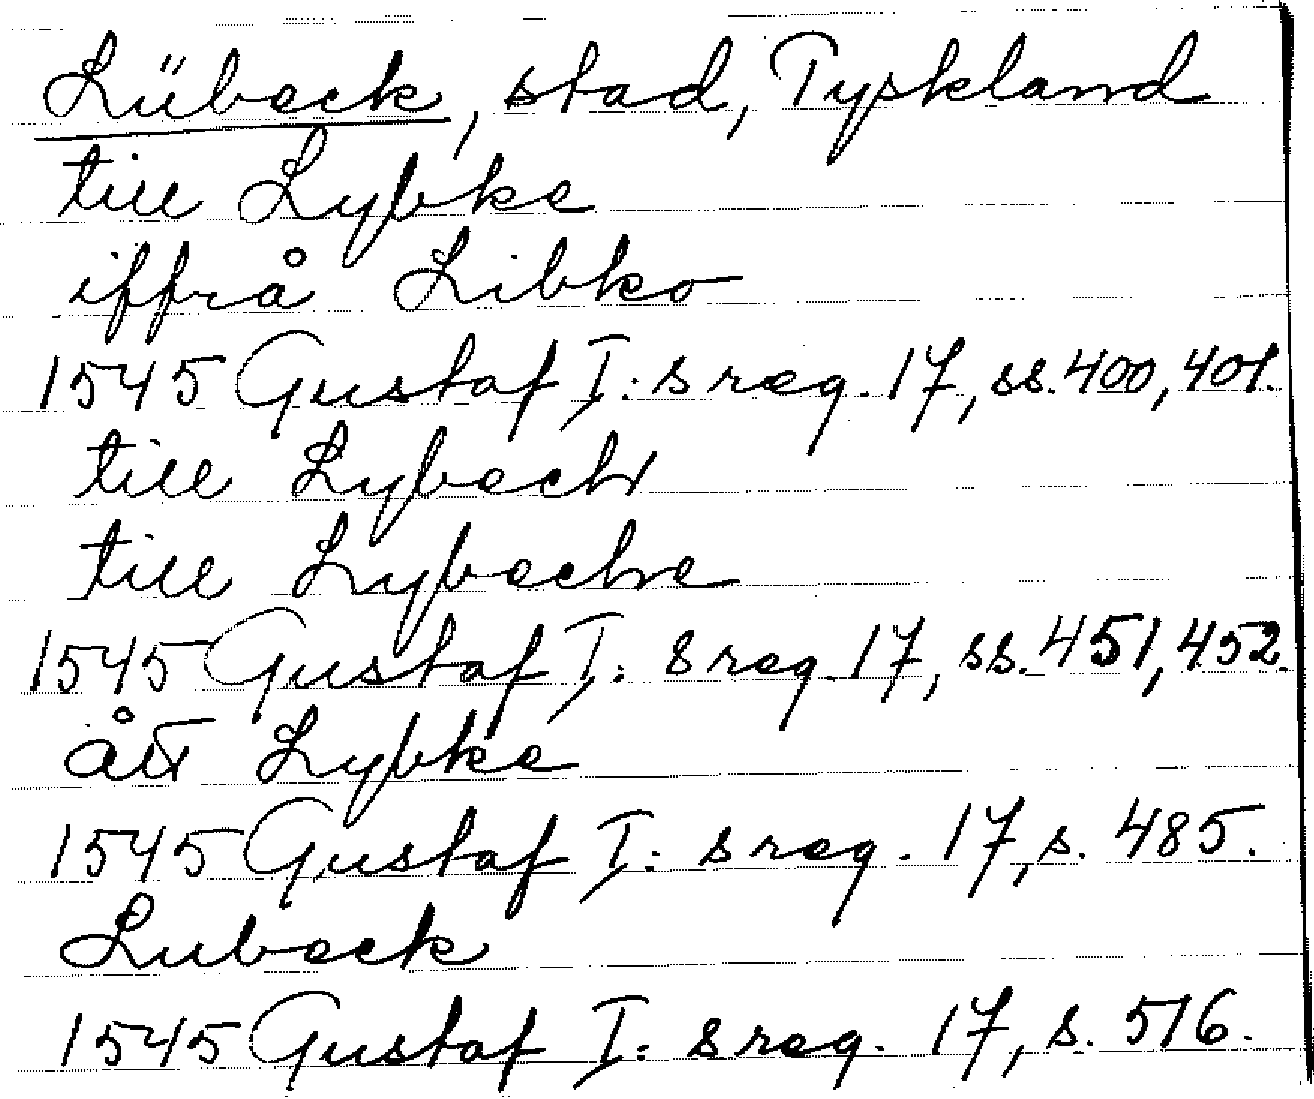 Lübeck, stad, Tyskland
till Lybke
iffrå Libko
1545 Gustaf I:s reg. 17, ss. 400, 401.
till Lybech
till Lybeche
1545 Gustaf I:s reg 17, ss. 451, 452.
ått Lybke
1545 Gustaf I:s reg. 17, s. 485.
Lubeck
1545 Gustaf I:s reg. 17, s. 516.